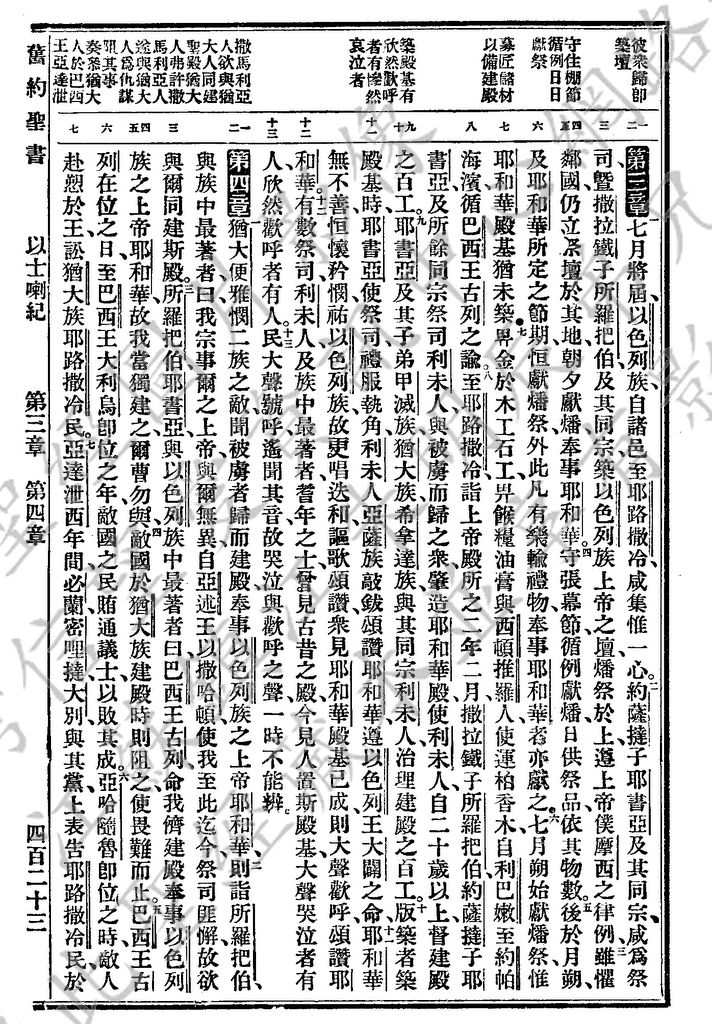 彼衆歸卽
築壇
守住棚節
循例日日
獻祭
募匠儲材
以備建殿
築殿基有
欣然歡呼
者有慘然
哀泣者
撒馬利亞
人欲與猶
大人同建
聖殿猶大
人弗許撒
馬利亞人
遂與猶大
人爲仇謀
阻其事
奏奏猶大
人於巴西
王亞達泄
第三章七月將屆以色列族自諸邑至耶路撒冷咸集惟一心約薩撻子耶書亞及其同宗咸爲祭
司曁撒拉鐵子所羅把伯及其同宗築以色列族上帝之壇燔祭於上遵上帝僕摩西之律例雖懼
鄰國仍立祭壇於其地朝夕獻燔奉事耶和華守張幕節循例獻燔日供祭品依其物數後於月朔
及耶和華所定之節期恒獻燔祭外此凡有樂輸禮物奉事耶和華者亦獻之七月朔始獻燔祭惟
耶和華殿基猶未築畀金於木工石工畀餱糧油膏與西頓推羅人使運柏香木自利巴嫩至約帕
海濱循巴西王古列之諭至耶路撒冷詣上帝殿所之二年二月撒拉鐵子所羅把伯約薩撻子耶
書亞及所餘同宗祭司利未人與被虜而歸之衆肇造耶和華殿使利未人自二十歲以上督建殿
之百工耶書亞及其子弟甲滅族猶大族希拿達族與其同宗利未人治理建殿之百工版築者築
殿基時耶書亞使祭司禮服執角利未人亞薩族敲鈸頌讚耶和華遵以色列王大闢之命耶和華
無不善恒懷矜憫祐以色列族故更唱迭和謳歌頌讚衆見耶和華殿基已成則大聲歡呼頌讚耶
和華有數祭司利未人及族中最著者耆年之士曾見古昔之殿今見人置斯殿基大聲哭泣者有
人欣然歡呼者有人民大聲號呼遙聞其音故哭泣與歡呼之聲一時不能辨
第四章猶大便雅憫二族之敵聞被虜者歸而建殿奉事以色列族之上帝耶和華則詣所羅把伯
與族中最著者曰我宗事爾之上帝與爾無異自亞述王以撒哈頓使我至此迄今祭司匪懈故欲
與爾同建斯殿所羅把伯耶書亞與以色列族中最著者曰巴西王古列命我儕建殿奉事以色列
族之上帝耶和華故我當獨建之爾曹勿與敵國於猶大族建殿時則阻之使畏難而止巴西王古
列在位之日至巴西王大利烏卽位之年敵國之民賄通議士以敗其成亞哈隨魯卽位之時敵人
赴愬於王訟猶大族耶路撒冷民亞達泄西年間必蘭密哩撻大別與其黨上表告耶路撒冷民於
舊約聖書 以士喇紀 第三章 第四章 四百二十三